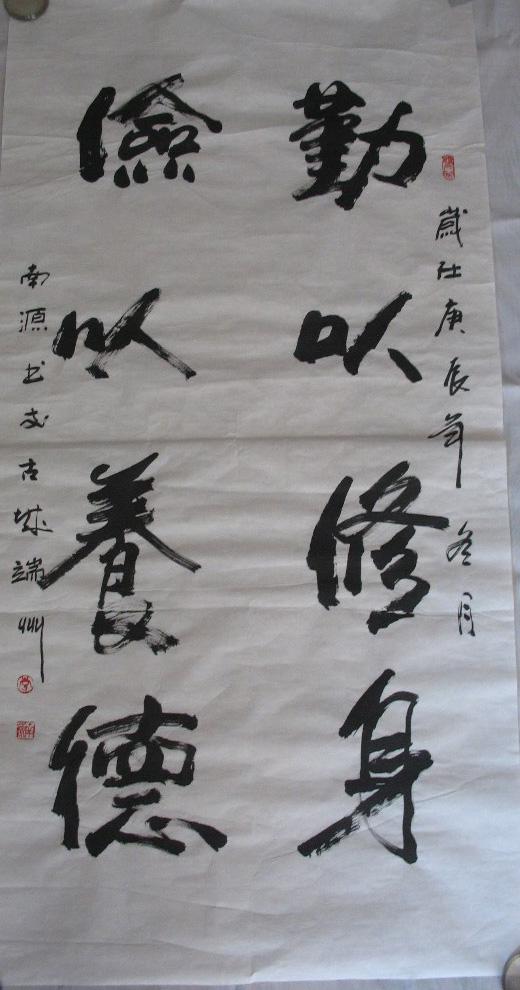 歲在庚辰年冬月
勤以修身
儉以養德
南源书於古城端州